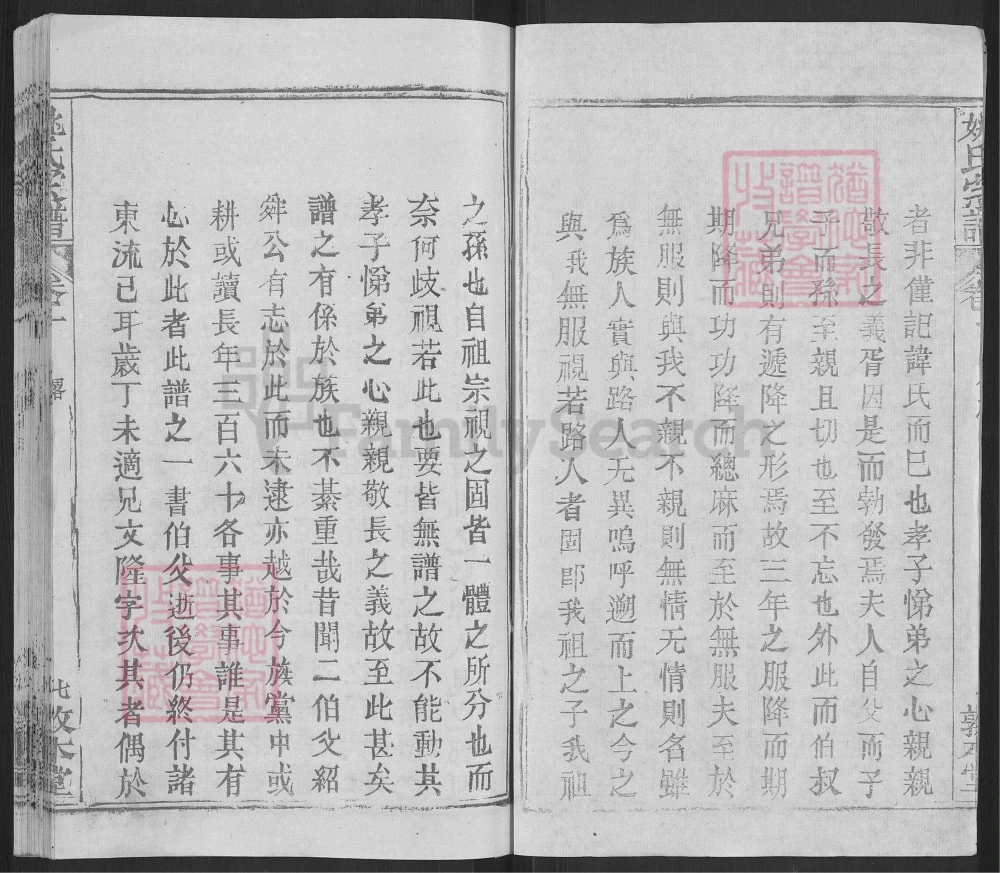 姚氏宗譜
者非僅記諱氏而巳也孝子悌弟之心親親
敬長之義胥因是而勃發焉夫人自父而子
子而孫至親且切也至不忘也外此而伯叔
兄弟則有遞降之形焉故三年之服降而期
期降而功功降而緦麻而至於無服夫至於
無服則與我不親不親則無情无情則名雖
爲族人實與路人无異嗚呼遡而上之今之
與我無服視若路人者固卽我祖之子我祖
之孫也自祖宗視之固皆一體之所分也而
奈何歧視若此也要皆無譜之故不能動其
孝子悌弟之心親親敬長之義故至此甚矣
譜之有係於族也不綦重哉昔聞二伯父紹
舜公有志於此而未逮亦越於今族黨中或
耕或讀長年三百六十各事其事誰是其有
心於此者此譜之一書伯父逝後仍終付諸
東流已耳歲丁未適兄文隆字次其者偶於
卷一
七
敦本堂
FamilySearch